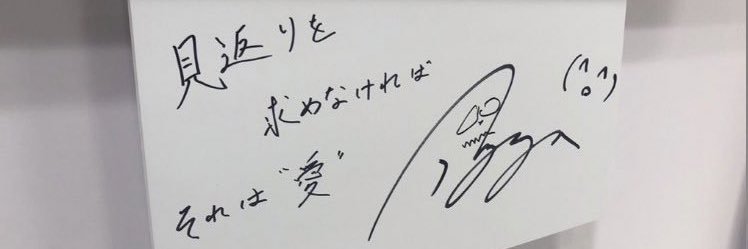 見返りを
求めなければ
それは"愛"
(^o^)